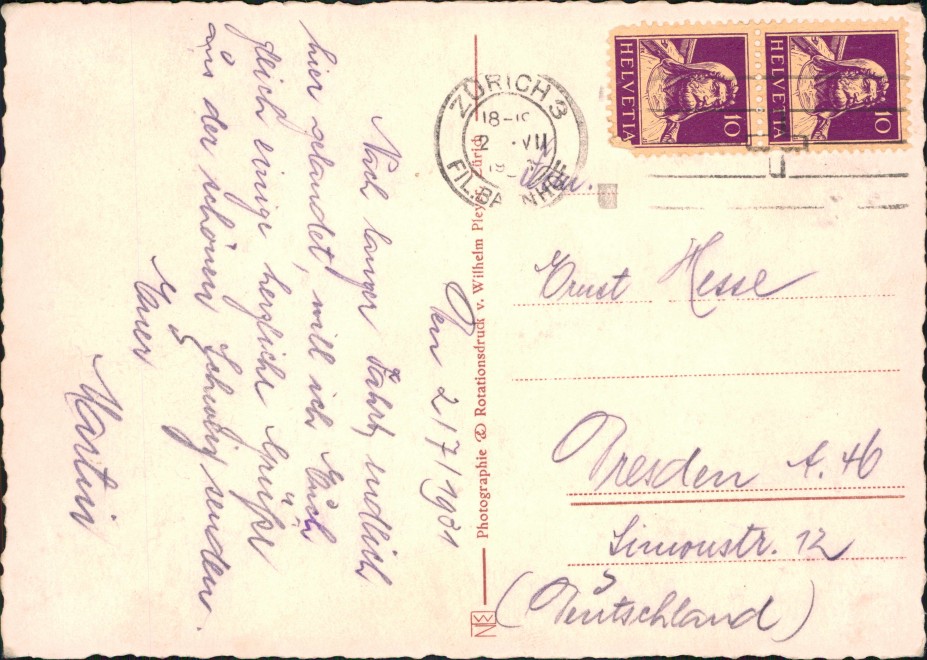 Den 2/7/1931
Nach langer Fahrt, endlich
hier gelandet, will ich Euch
gleich einige herzliche Grüße
aus der schönen Schweiz senden.
Euer
Martin
Photographie & Rotationsdruck v. Wilhelm Pleyer, Zürich
HELVETIA 10
HELVETIA 10
ZÜRICH 3
18-19
2. VII
FIL. BAHNH
Ernst Hesse
Dresden A. 46
Simonstr. 12
(Deutschland)